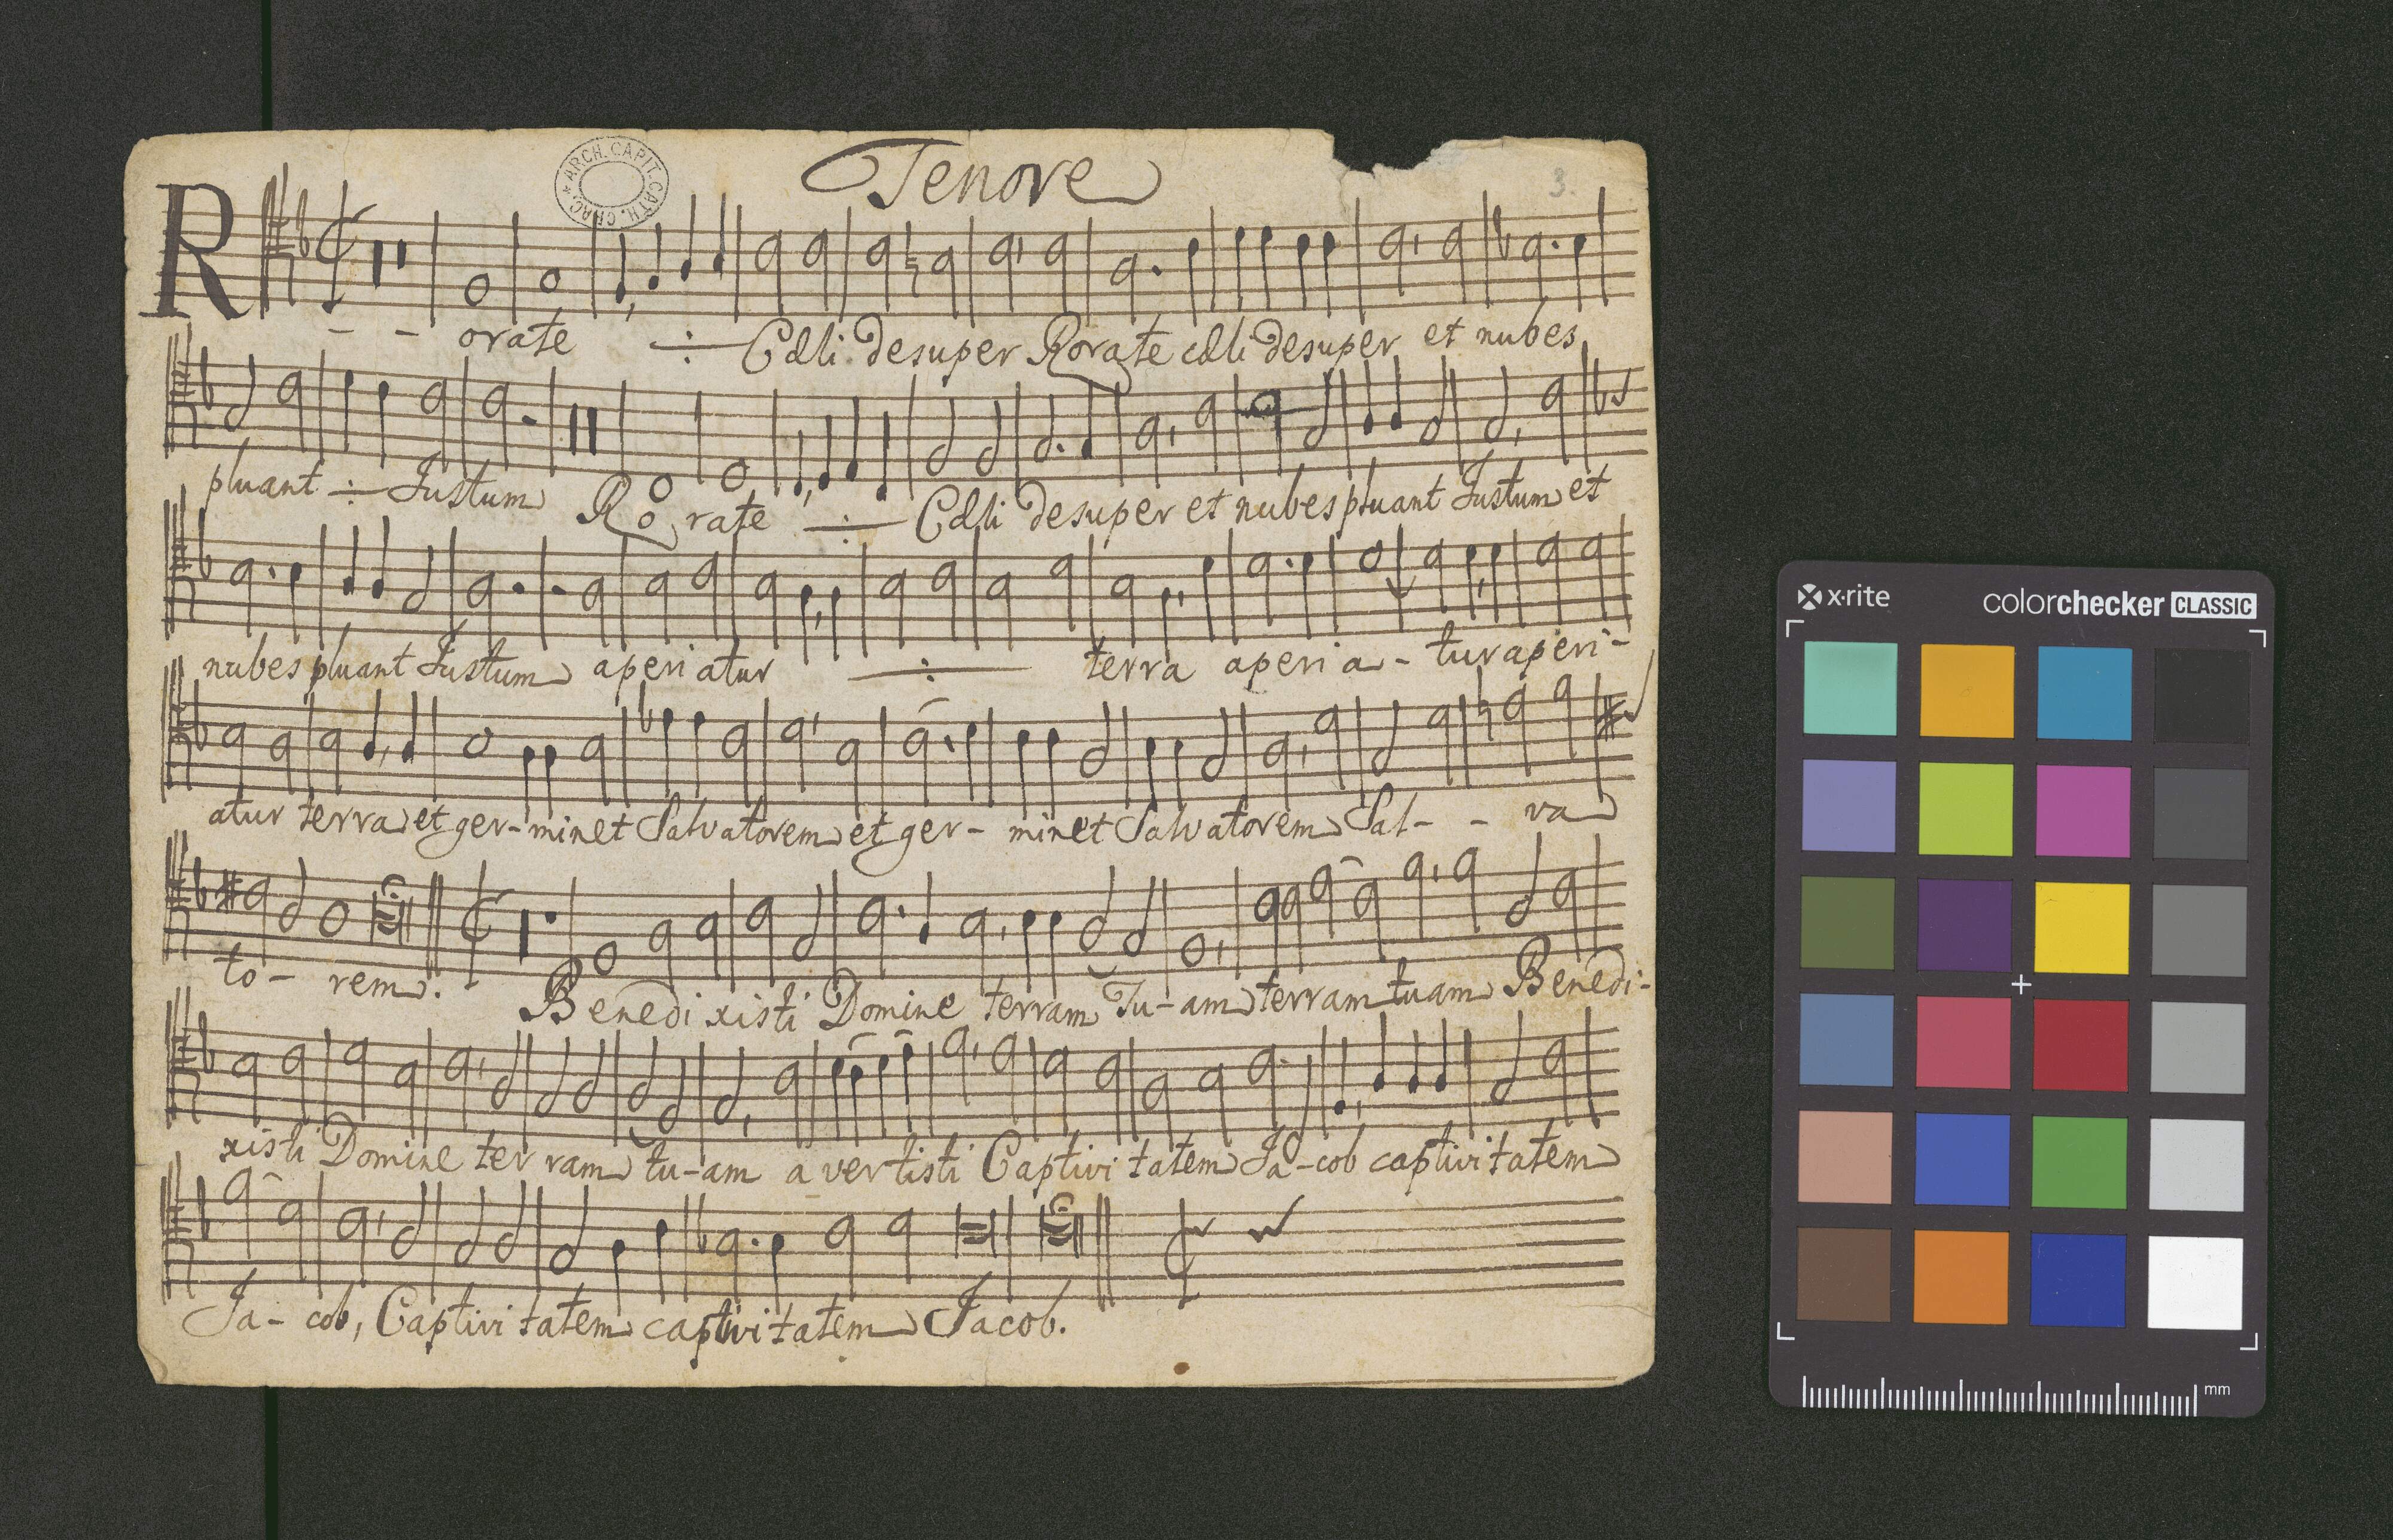 Tenore
ARCH. CAPIT. CATH. CRAC.
3.
R - - orate ÷ Cæli desuper Rorate cæli desuper et nubes
pluant ÷ Justum Rorate ÷ Cæli desuper et nubes pluant Justum et
nubes pluant Justum aperiatur ÷ terra aperia- tur aperi-
atur terra et ger- minet Salvatorem et ger- minet Salvatorem Sal- - va
to- rem. Benedixisti Domine terram Tu- am terram tuam Benedi-
xisti Domine terram tu-am avertisti Captivitatem Ja-cob captivitatem
Ja- cob, Captivitatem captivitatem Jacob.
x·rite
colorchecker CLASSIC
mm